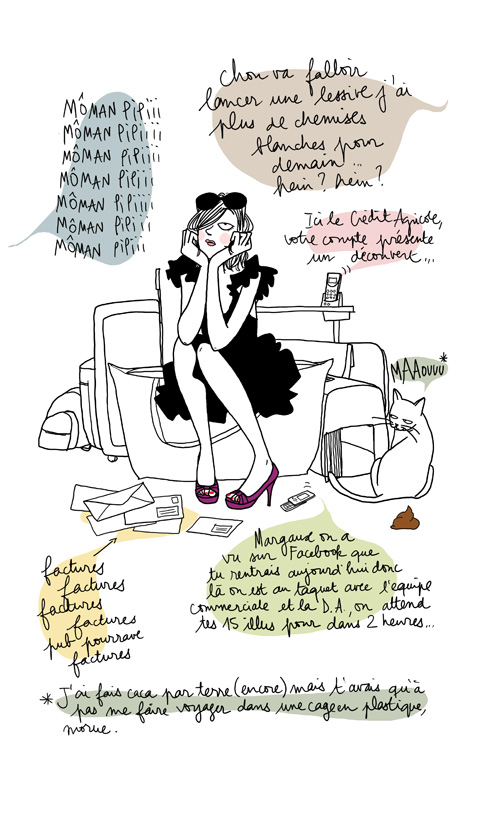 MÔMAN PiPiii
MÔMAN PiPiiii
MÔMAN PiPiiii
MÔMAN PiPiiii
MÔMAN PiPiiii
MÔMAN PiPiii
MÔMAN PiPiii
Chon va falloir
lancer une lessive j'ai
plus de chemises
blanches pour
demain...
hein? hein?
Ici le Crédit Agricole,
votre compte présente
un découvert...
MAAOUUU*
factures
factures
factures
factures
pub pourrave
factures
Margaud on a
vu sur Facebook que
tu rentrais aujourd'hui donc
là on est au taquet avec l'équipe
commerciale et la D.A., on attend
tes 15 illus pour dans 2 heures...
* J'ai fais caca par terre (encore) mais t'avais qu'à
pas me faire voyager dans une cage en plastique,
morue.